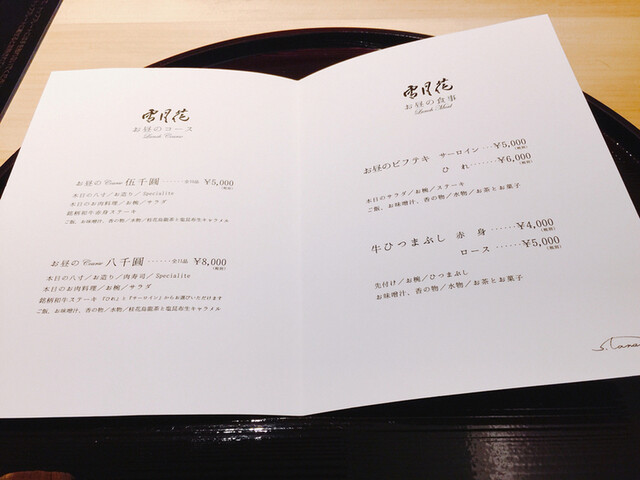 雪月花
お昼のコース
Lunch Course
お昼の Course 伍千圓 ……全9品 ¥5,000
(税別)
本日の八寸／お造り／Specialite
本日のお肉料理／お椀／サラダ
銘柄和牛赤身ステーキ
ご飯、お味噌汁、香の物／水物／桂花烏龍茶と塩昆布生キャラメル
お昼の Course 八千圓 ……全11品 ¥8,000
(税別)
本日の八寸／お造り／肉寿司／Specialite
本日のお肉料理／お椀／サラダ
銘柄和牛ステーキ『ひれ』と『サーロイン』からお選びいただけます
ご飯、お味噌汁、香の物／水物／桂花烏龍茶と塩昆布生キャラメル
雪月花
お昼の食事
Lunch Meal
お昼のビフテキ サーロイン …¥5,000
(税別)
ひれ……¥6,000
(税別)
本日のサラダ／お椀／ステーキ
ご飯、お味噌汁、香の物／水物／お茶とお菓子
牛ひつまぶし 赤身 ……¥4,000
(税別)
ロース ……¥5,000
(税別)
先付け／お椀／ひつまぶし
お味噌汁、香の物／水物／お茶とお菓子